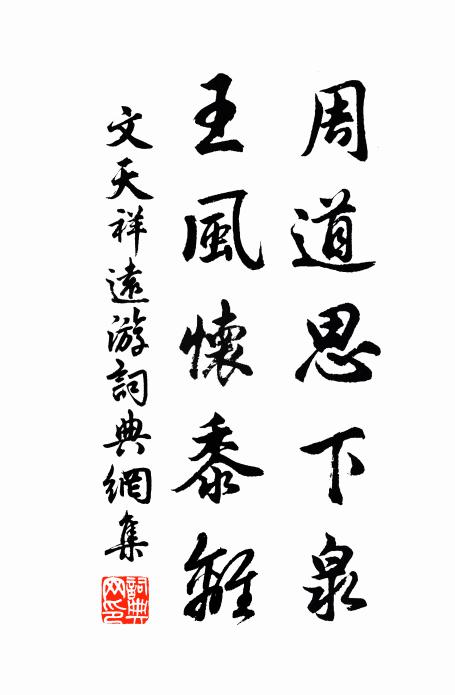 周道思下泉
王風懷黍離
文天祥遠游詞典網集
詞典網印